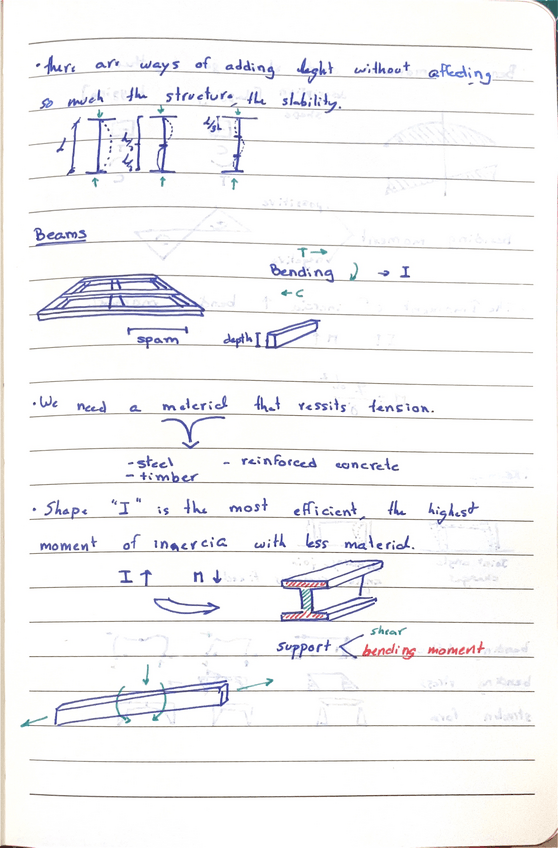 · there are ways of adding leght without affecting
so much the structure, the stability.
L
L/2
L/2
L/3
Beams
T →
Bending → I
← C
spam
depth I
· We need a material that ressits tension.
- steel - reinforced concrete
- timber
· Shape "I" is the most efficient, the highest
moment of inaercia with less material.
I ↑ M ↓
shear
support < bending moment